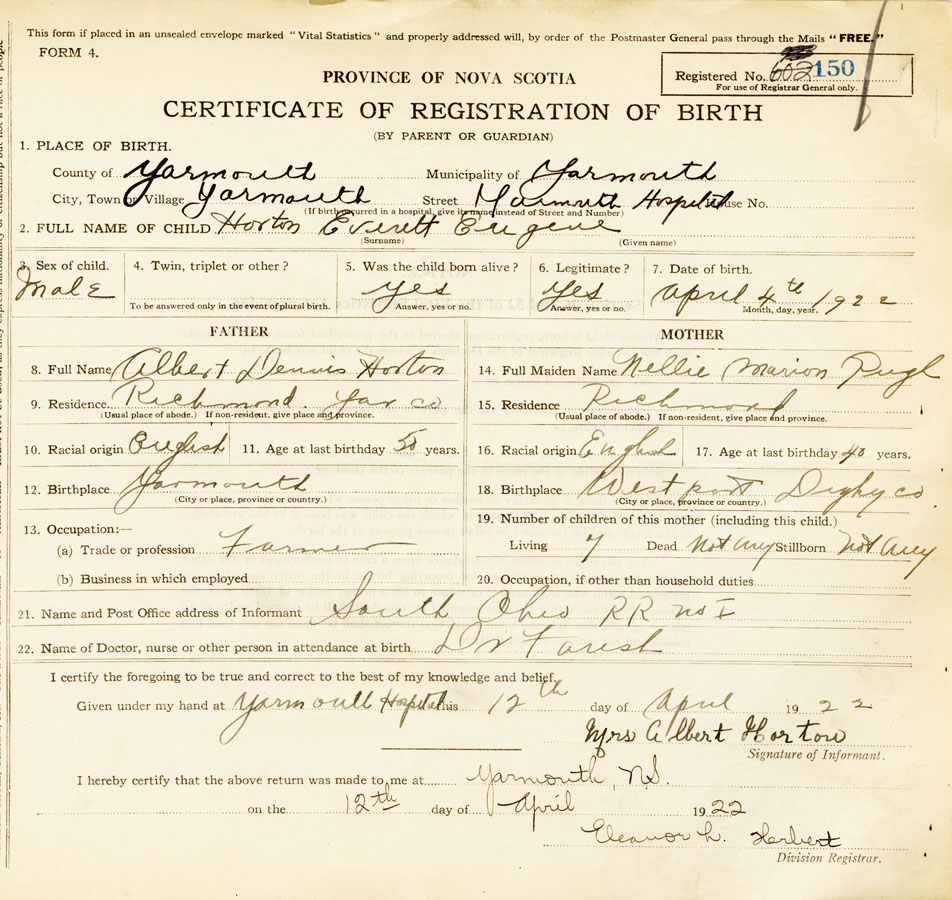 This form if placed in an unsealed envelope marked "Vital Statistics" and properly addressed will, by order of the Postmaster General pass through the Mails "FREE."
FORM 4.
PROVINCE OF NOVA SCOTIA
Registered No. 602150
For use of Registrar General only.
CERTIFICATE OF REGISTRATION OF BIRTH
(BY PARENT OR GUARDIAN)
1. PLACE OF BIRTH.
County of Yarmouth Municipality of Yarmouth
City, Town or Village Yarmouth Street Yarmouth Hospital House No.
(If birth occurred in a hospital, give its name instead of Street and Number)
2. FULL NAME OF CHILD Horton Everett Eugene
(Surname) (Given name)
3. Sex of child. 4. Twin, triplet or other? 5. Was the child born alive? 6. Legitimate? 7. Date of birth.
Male yes yes April 4th 1922
To be answered only in the event of plural birth. Answer, yes or no. Answer, yes or no. Month, day, year.
FATHER MOTHER
8. Full Name Albert Dennis Horton 14. Full Maiden Name Nellie Marion
9. Residence Richmond Yar co 15. Residence Richmond
(Usual place of abode.) If non-resident, give place and province. (Usual place of abode.) If non-resident, give place and province.
10. Racial origin English 11. Age at last birthday 50 years. 16. Racial origin English 17. Age at last birthday 40 years.
12. Birthplace Yarmouth 18. Birthplace Westport Digby co
(City or place, province or country.) (City or place, province or country.)
13. Occupation:— 19. Number of children of this mother (including this child.)
(a) Trade or profession Farmer Living 7 Dead Not Any Stillborn Not Any
(b) Business in which employed 20. Occupation, if other than household duties
21. Name and Post Office address of Informant South Ohio RR no I
22. Name of Doctor, nurse or other person in attendance at birth Dr
I certify the foregoing to be true and correct to the best of my knowledge and belief.
Given under my hand at Yarmouth Hospital this 12th day of April 1922
Mrs Albert Horton
Signature of Informant.
I hereby certify that the above return was made to me at Yarmouth, N.S.
on the 12th day of April 1922
Eleanor L. Herbert
Division Registrar.